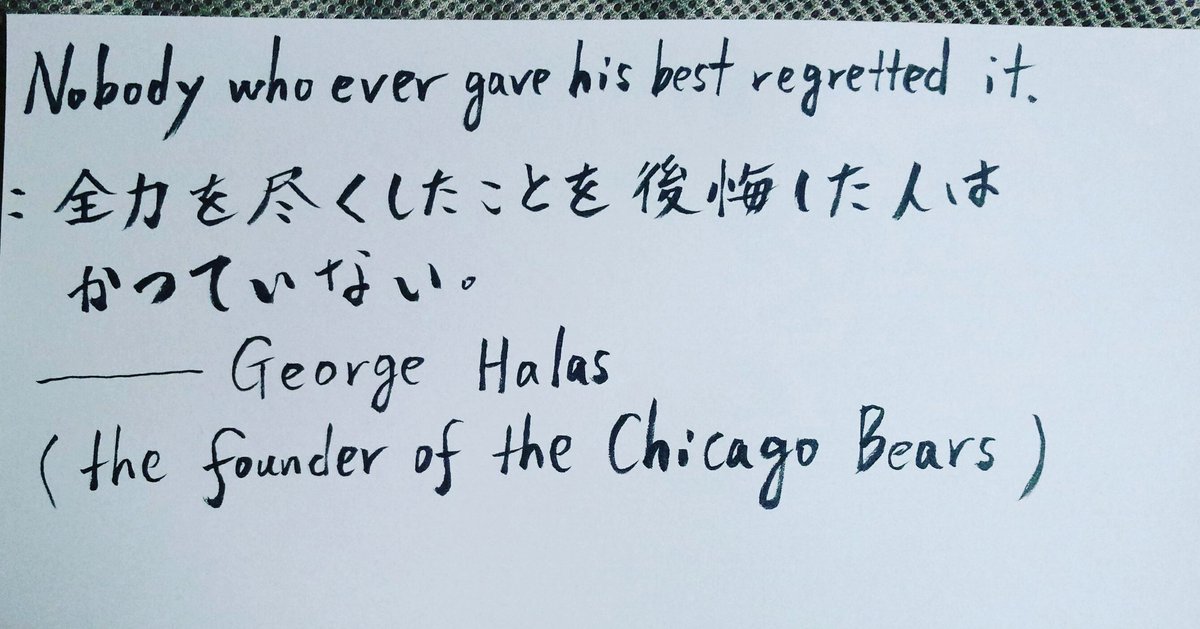 Nobody who ever gave his best regretted it.
: 全力を尽くしたことを後悔した人は
かつていない。
—— George Halas
(the founder of the Chicago Bears)